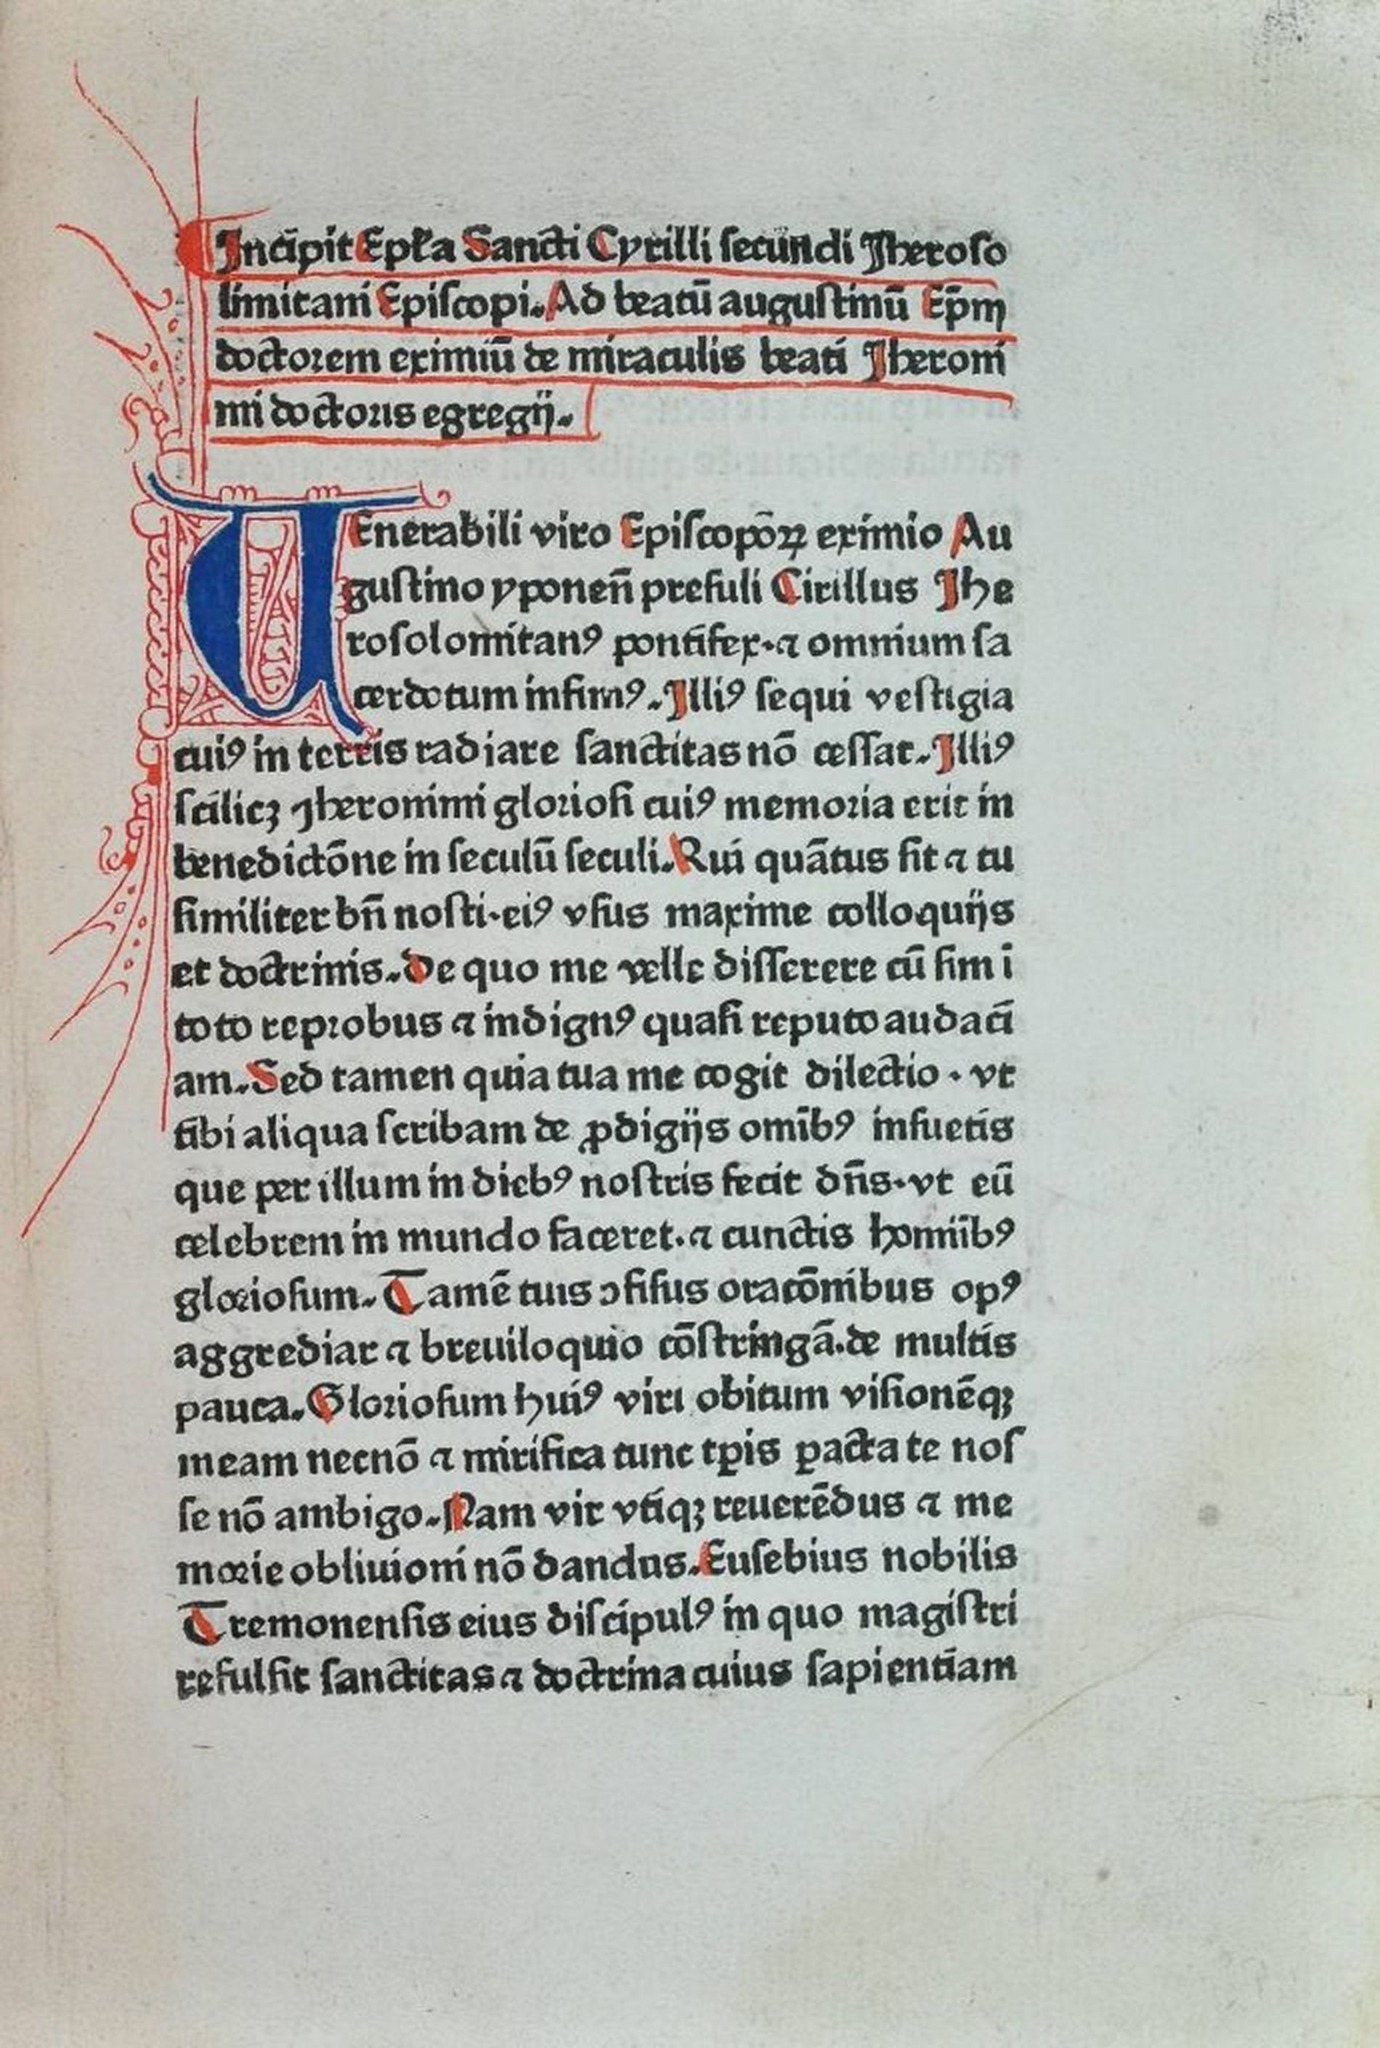 Incipit Epl̄a Sancti Cyrilli secundi Jheroso
limitani Episcopi. Ad beatū augustinū Ep̄m
doctorem eximiū de miraculis beati Jheroni
mi doctoris egregij.
VEnerabili viro Episcopōꝝ eximio Au
gustino yponen̄ presuli Cirillus Jhe
rosolomitanꝰ pontifex·⁊ omnium sa
cerdotum infimꝰ. Illiꝰ sequi vestigia
cuiꝰ in terris radiare sanctitas nō cessat. Illiꝰ
scilicꝫ Jheronimi gloriosi cuiꝰ memoria erit in
benedictōne in seculū seculi. Rui quātus sit ⁊ tu
similiter bn̄ nosti·eiꝰ vsus maxime colloquijs
et doctrinis. De quo me velle disserere cū sim ī
toto reprobus ⁊ indignꝰ quasi reputo audaci
am. Sed tamen quia tua me cogit dilectio · vt
tibi aliqua scribam de ꝓdigijs omībꝰ insuetis
que per illum in diebꝰ nostris fecit dn̄s·vt eū
celebrem in mundo faceret·⁊ cunctis homīibꝰ
gloriosum. Tamē tuis ↄfisus oracōnibus opꝰ
aggrediar ⁊ breuiloquio cōstringā.de multis
pauca. Gloriosum huiꝰ viri obitum visionēqꝫ
meam necnō ⁊ mirifica tunc tꝑis ꝑacta te nos
se nō ambigo. Nam vir vtiqꝫ reuerēdus ⁊ me
morie obliuioni nō dandus. Eusebius nobilis
Tremonensis eius discipulꝰ in quo magistri
refulsit sanctitas ⁊ doctrina cuius sapientiam